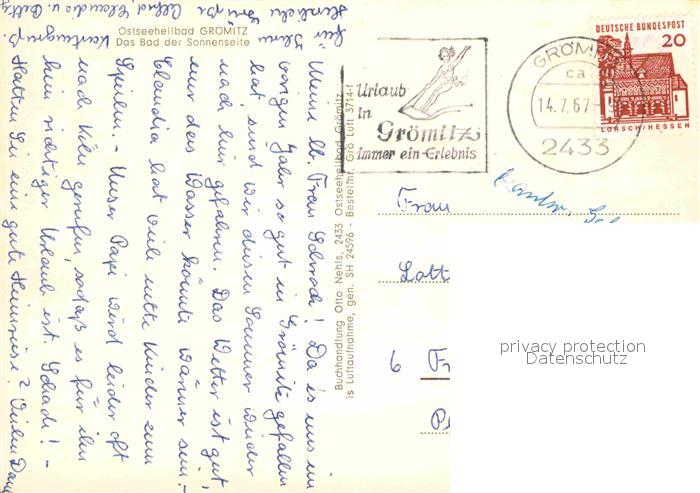 Ostseeheilbad GRÖMITZ
Das Bad der Sonnenseite
Meine lb. Frau Schroch! Da es uns im
vorigen Jahr so gut in Grömitz gefallen
hat, sind wir diesen Sommer wieder
nach hier gefahren. Das Wetter ist gut
nur das Wasser könnte wärmer sein.
Claudia hat viele nette Kinder zum
Spielen. – Unser Papi wird leider oft
nach Köln gerufen, sodaß es für ihn
kein richtiger Urlaub ist. Schade! –
Hatten Sie eine gute Heimreise? Vielen Dank
für Ihren
Kartengruß.
Herzliche Grüße
Alfred, Claudia u. Betty
Buchhandlung Otto Nehls, 2433 Ostseeheilbad Grömitz
is Luftaufnahme, gen. SH 24596 - Bestellnr. Grö Luft 3714-1
Urlaub
in
Grömitz
immer ein Erlebnis
GRÖMITZ
ca
14.7.67
2433
DEUTSCHE BUNDESPOST
20
LORSCH/HESSEN
Frau
Lott
6 Fr
privacy protection
Datenschutz